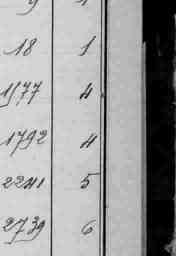 18 1
1577 4
1792 4
2241 5
2739 6